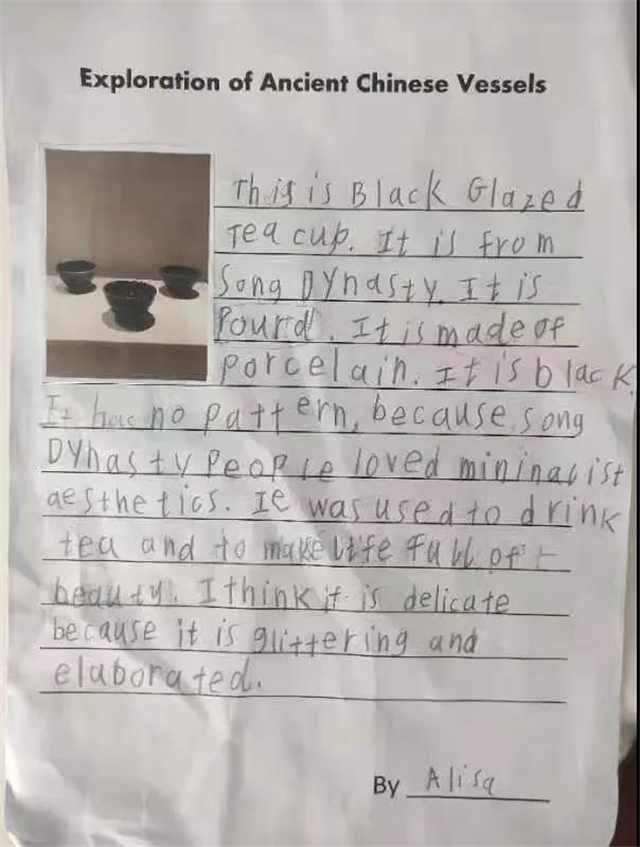 Exploration of Ancient Chinese Vessels
This is Black Glazed
Tea cup. It is from
Song Dynasty. It is
Pourd. It is made of
porcelain. It is black.
It has no pattern, because song
Dynasty People loved mininalist
aesthetics. It was used to drink
tea and to make life full of
beauty. I think it is delicate
because it is glittering and
elaborated.
By Alisa